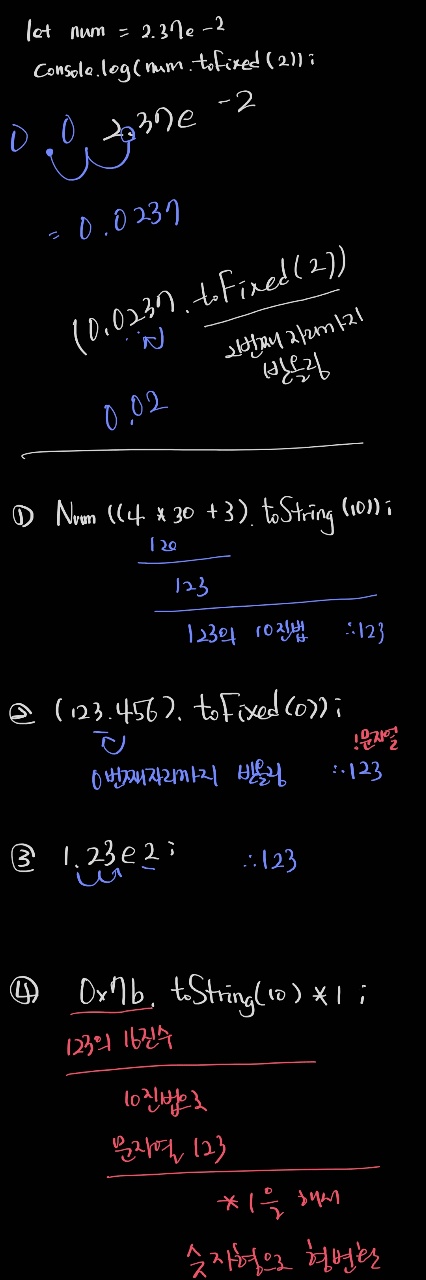 let num = 2.37e-2
console.log(num.toFixed(2));
0 0 2.37e -2
= 0.0237
(0.0237.toFixed(2))
2번째자리까지
반올림
0.02
① Num ((4 * 30 + 3).toString(10));
120
123
123의 10진법 ∴123
② (123.456).toFixed(0));
!문자열
0번째자리까지 반올림 ∴123
③ 1.23e2; ∴123
④ 0x7b.toString(10) * 1;
123의 16진수
10진법으로
문자열 123
*1을 해서
숫자형으로 형변환